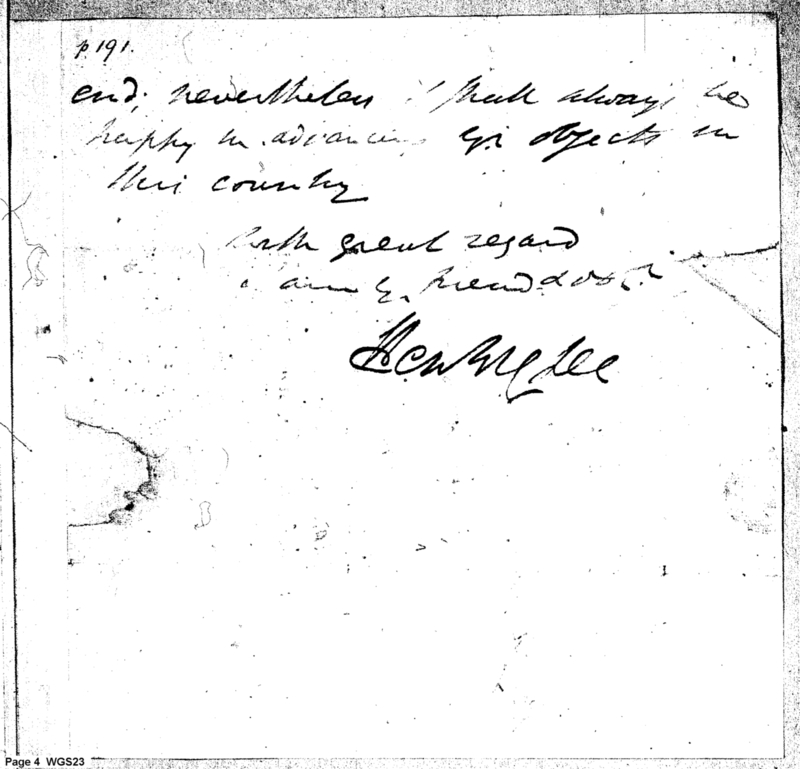 p 191.
end; nevertheless I shall always be
happy in advancing yr objects in
this country
With great regard
I am yr friend & ob
Henry Lee
Page 4 WGS23